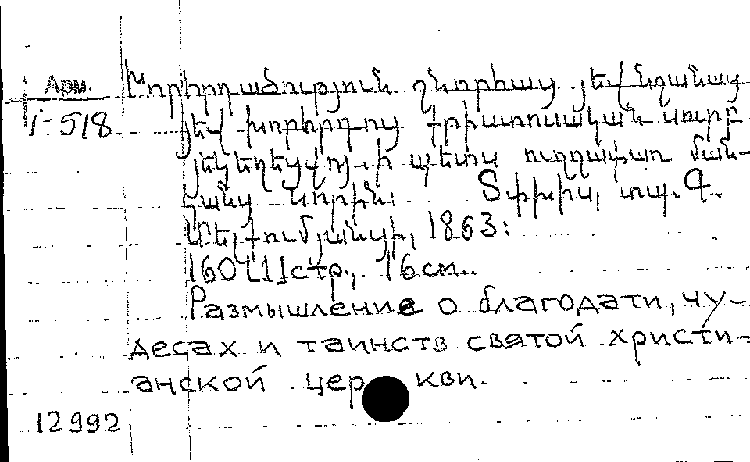 Арм.
I-518
Խորհրդածություն շնորհաց յեվ նշանաց
յեվ խորհրդոց քրիստոսական սուրբ
յեկեղեցվո, ի պետս ուղղափառ ման-
կանց նորին։ Տփխիս, տպ. Գ.
Մելքումյանցի, 1863։
160 11 стр., 16 см.
Размышление о благодати, чу-
десах и таинств святой христи-
анской церкви.
12992